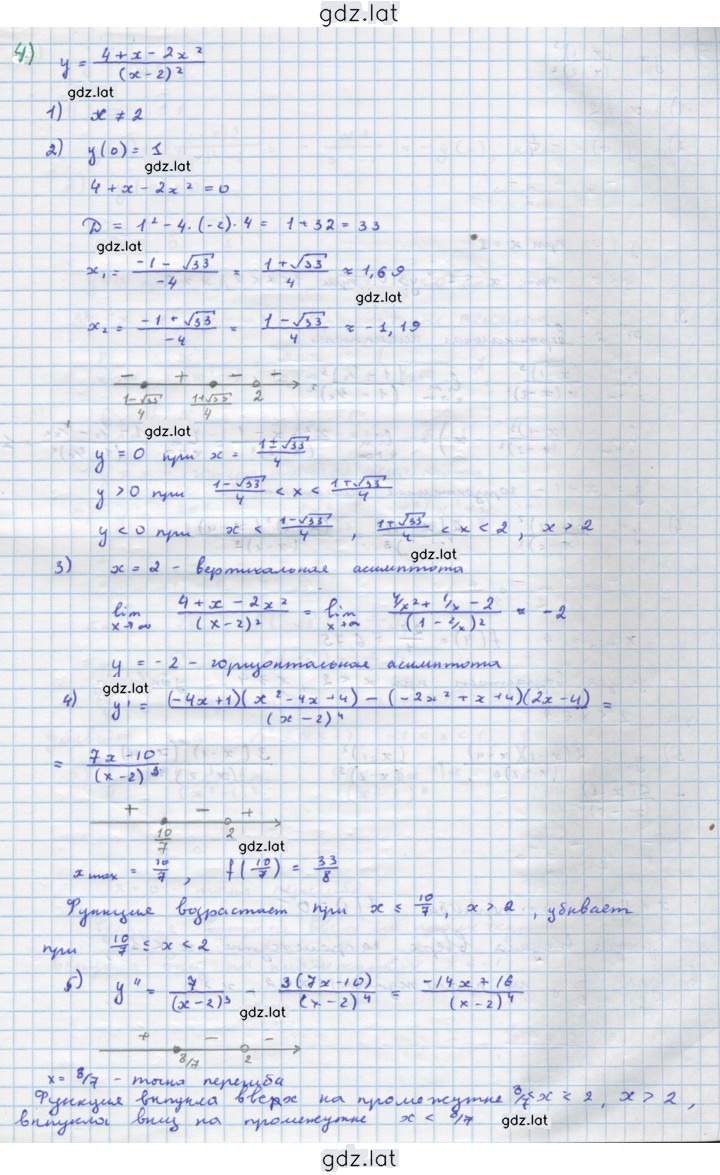 gdz.lat
4)
y = (4+x-2x²)/(x-2)²
gdz.lat
1) x ≠ 2
2) y(0) = 1
gdz.lat
4+x-2x² = 0
D = 1²-4·(-2)·4 = 1+32 = 33
gdz.lat
x₁ = (-1-√33)/-4 = (1+√33)/4 ≈ 1,69
gdz.lat
x₂ = (-1+√33)/-4 = (1-√33)/4 ≈ -1,19
- + - -
(1-√33)/4 (1+√33)/4 2
gdz.lat
y = 0 при x = (1±√33)/4
y > 0 при (1-√33)/4 < x < (1+√33)/4
y < 0 при x < (1-√33)/4 , (1+√33)/4 < x < 2, x > 2
gdz.lat
3) x = 2 - вертикальная асимптота
lim x→∞ (4+x-2x²)/(x-2)² = lim x→∞ (4/x²+1/x-2)/(1-2/x)² = -2
y = -2 - горизонтальная асимптота
gdz.lat
4) y' = ((-4x+1)(x²-4x+4)-(-2x²+x+4)(2x-4))/(x-2)⁴ =
= (7x-10)/(x-2)³
+ - +
10/7 2
gdz.lat
x max = 10/7 , f(10/7) = 33/8
Функция возрастает при x ≤ 10/7, x > 2 , убывает
при 10/7 ≤ x < 2
5) y'' = 7/(x-2)³ - 3(7x-10)/(x-2)⁴ = (-14x+16)/(x-2)⁴
gdz.lat
+ - -
8/7 2
x = 8/7 - точка перегиба
Функция выпукла вверх на промежутке 8/7 < x < 2, x > 2,
выпукла вниз на промежутке x < 8/7
gdz.lat
gdz.lat